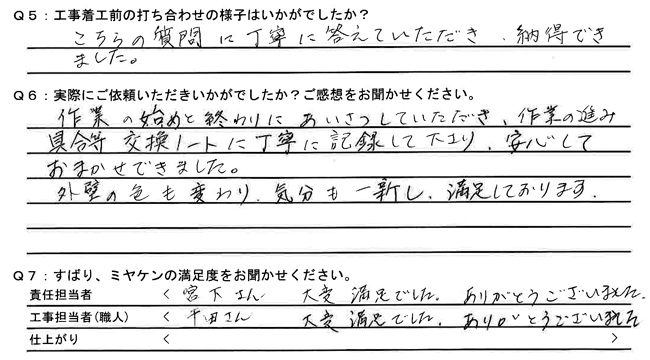 Q5：工事着工前の打ち合わせの様子はいかがでしたか？
こちらの質問に丁寧に答えていただき、納得でき
ました。
Q6：実際にご依頼いただきいかがでしたか？ご感想をお聞かせください。
作業の始めと終わりにあいさつしていただき、作業の進み
具合等 交換ノートに丁寧に記録して下さり、安心して
おまかせできました。
外壁の色も変わり、気分も一新し、満足しております.
Q7：ずばり、ミヤケンの満足度をお聞かせください。
責任担当者 < 宮下さん 大変満足でした. ありがとうございました.
工事担当者(職人) < 平田さん 大変満足でした. ありがとうございました
仕上がり < >